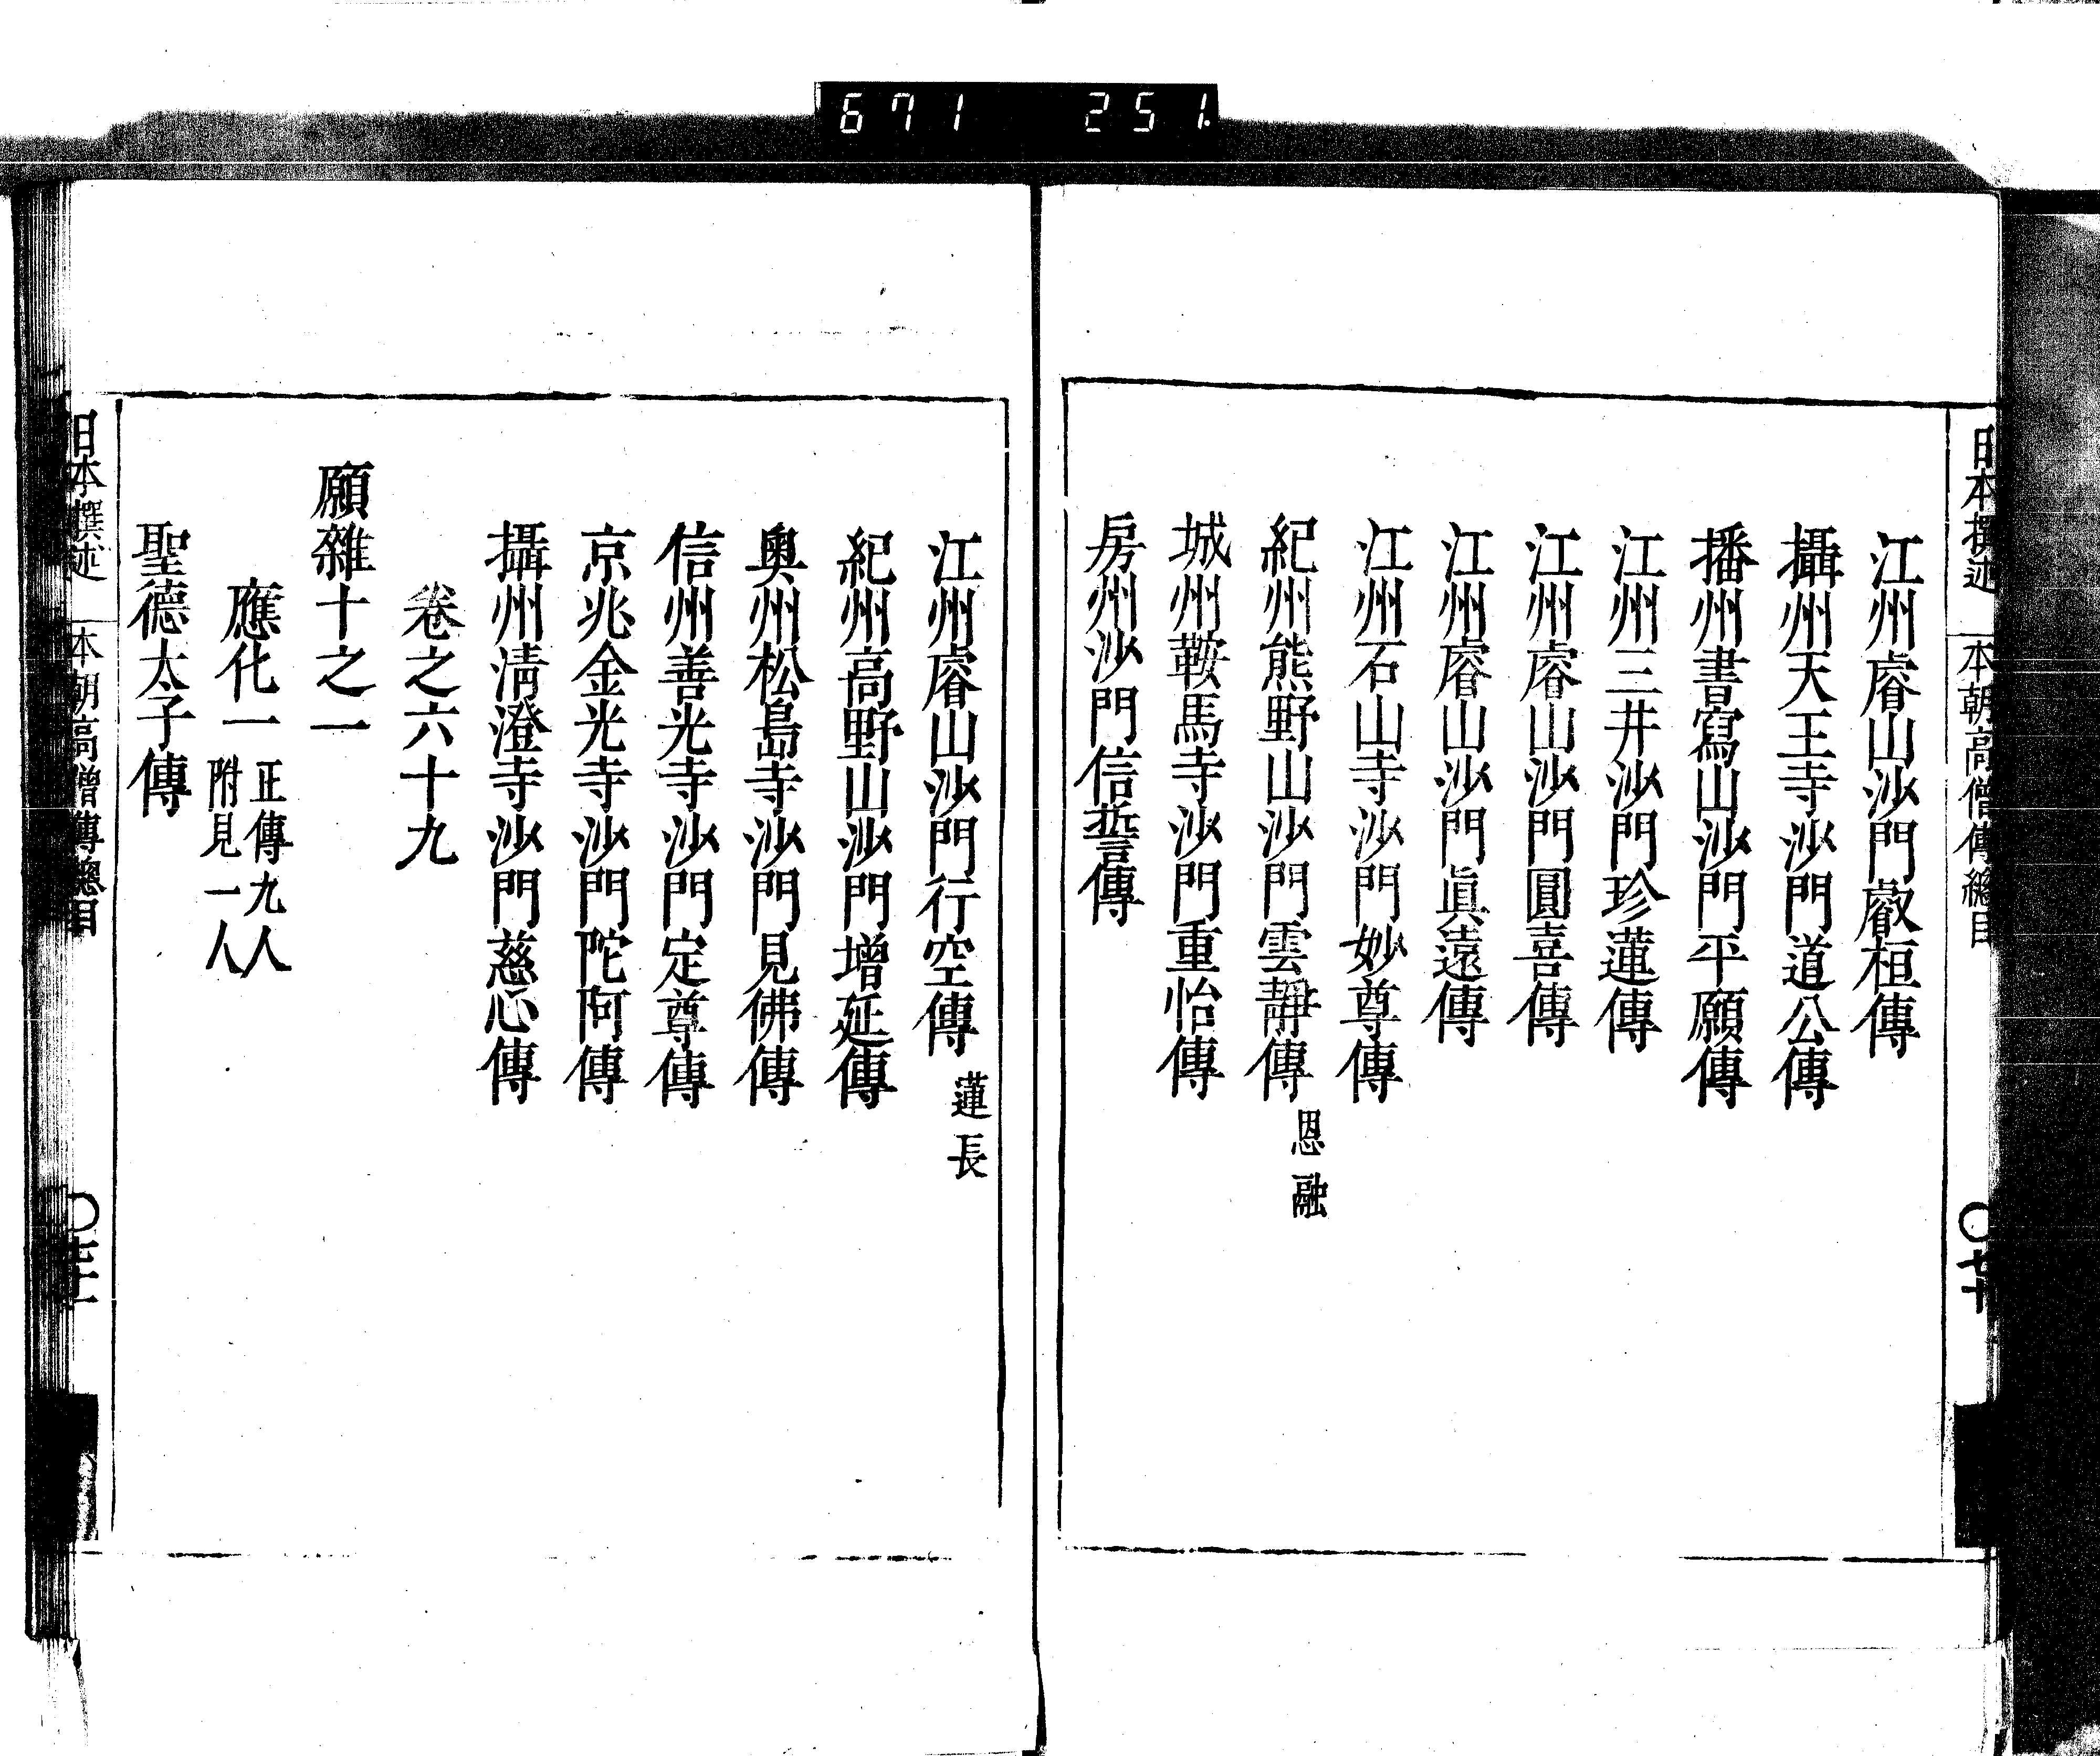 671 251
日本撰述 本朝高僧傳總目 〇七十
江州睿山沙門叡桓傳
攝州天王寺沙門道公傳
播州書寫山沙門平願傳
江州三井沙門珍蓮傳
江州睿山沙門圓喜傳
江州睿山沙門眞遠傳
江州石山寺沙門妙尊傳
紀州熊野山沙門雲靜傳 恩融
城州鞍馬寺沙門重怡傳
房州沙門信誓傳
江州睿山沙門行空傳 蓮長
紀州高野山沙門增延傳
奧州松島寺沙門見佛傳
信州善光寺沙門定尊傳
京兆金光寺沙門陀阿傳
攝州清澄寺沙門慈心傳
卷之六十九
願雜十之一
應化一 正傳九人 附見一人
聖德太子傳
日本撰述 本朝高僧傳總目 〇七十一